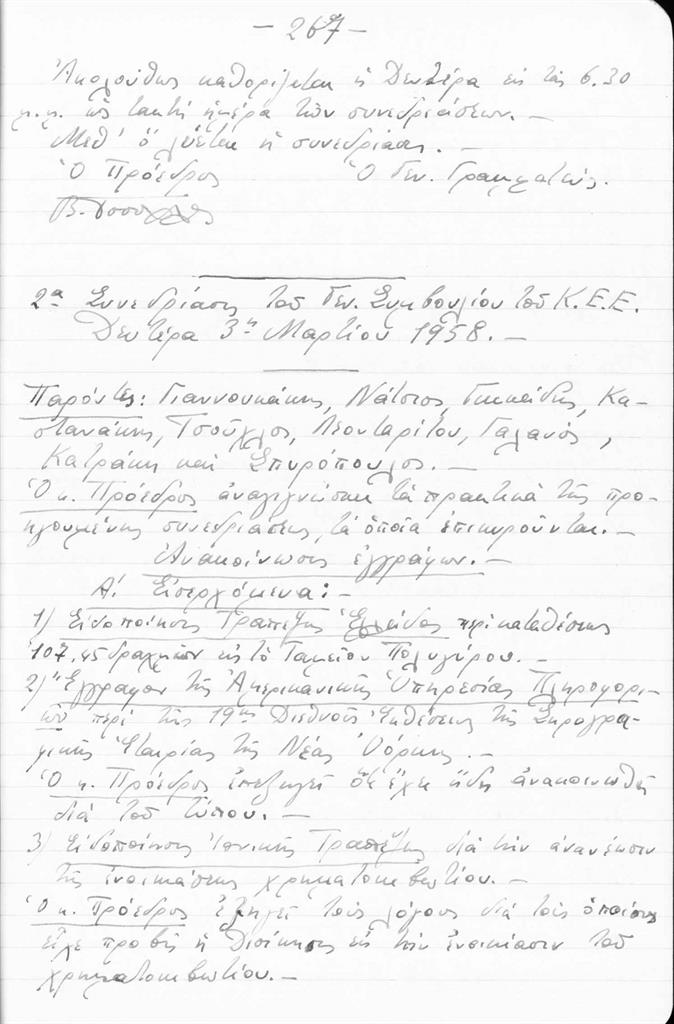 - 267 -
Ἀκολούθως καθορίζεται ἡ Δευτέρα εἰς τὰς 6.30
μ.μ. ὡς τακτὴ ἡμέρα τῶν συνεδριάσεων. -
Μεθ' ὃ λύεται ἡ συνεδρίασις. -
Ὁ Πρόεδρος Ὁ Γεν. Γραμματεύς.
2α Συνεδρίασις τοῦ Γεν. Συμβουλίου τοῦ Κ.Ε.Ε.
Δευτέρα 3η Μαρτίου 1958. -
Παρόντες: Γιαννουκάκης, Νάτσιος, Γικαείδης, Κα-
στανάκης, Τσοῦχλος, Λεονταρίτου, Γαλανός,
Κατράκη καὶ Σπυρόπουλος. -
Ὁ κ. Πρόεδρος ἀναγιγνώσκει τὰ πρακτικὰ τῆς προ-
ηγουμένης συνεδριάσεως, τὰ ὁποῖα ἐπικυροῦνται. -
Ἀνακοίνωσις ἐγγράφων. -
Α'. Εἰσερχόμενα: -
1) Εἰδοποίησις Τραπέζης Ἑλλάδος περὶ καταθέσεως
107,45 δραχμῶν εἰς τὸ Ταμεῖον Πολυγύρου. -
2) Ἔγγραφον τῆς Ἀμερικανικῆς Ὑπηρεσίας Πληροφορι-
ῶν περὶ τῆς 19ης Διεθνοῦς Ἐκθέσεως τῆς Σηρογρα-
φικῆς Ἑταιρίας τῆς Νέας Ὑόρκης. -
Ὁ κ. Πρόεδρος ἐπεξηγεῖ ὅτι ἔχει ἤδη ἀνακοινωθῆ
διὰ τοῦ τύπου. -
3) Εἰδοποίησις Ἰονικῆς Τραπέζης διὰ τὴν ἀνανέωσιν
τῆς ἐνοικιάσεως χρηματοκιβωτίου. -
Ὁ κ. Πρόεδρος ἐξηγεῖ τοὺς λόγους διὰ τοὺς ὁποίους
εἶχε προβῆ ἡ Διοίκησις εἰς τὴν ἐνοικίασιν τοῦ
χρηματοκιβωτίου. -